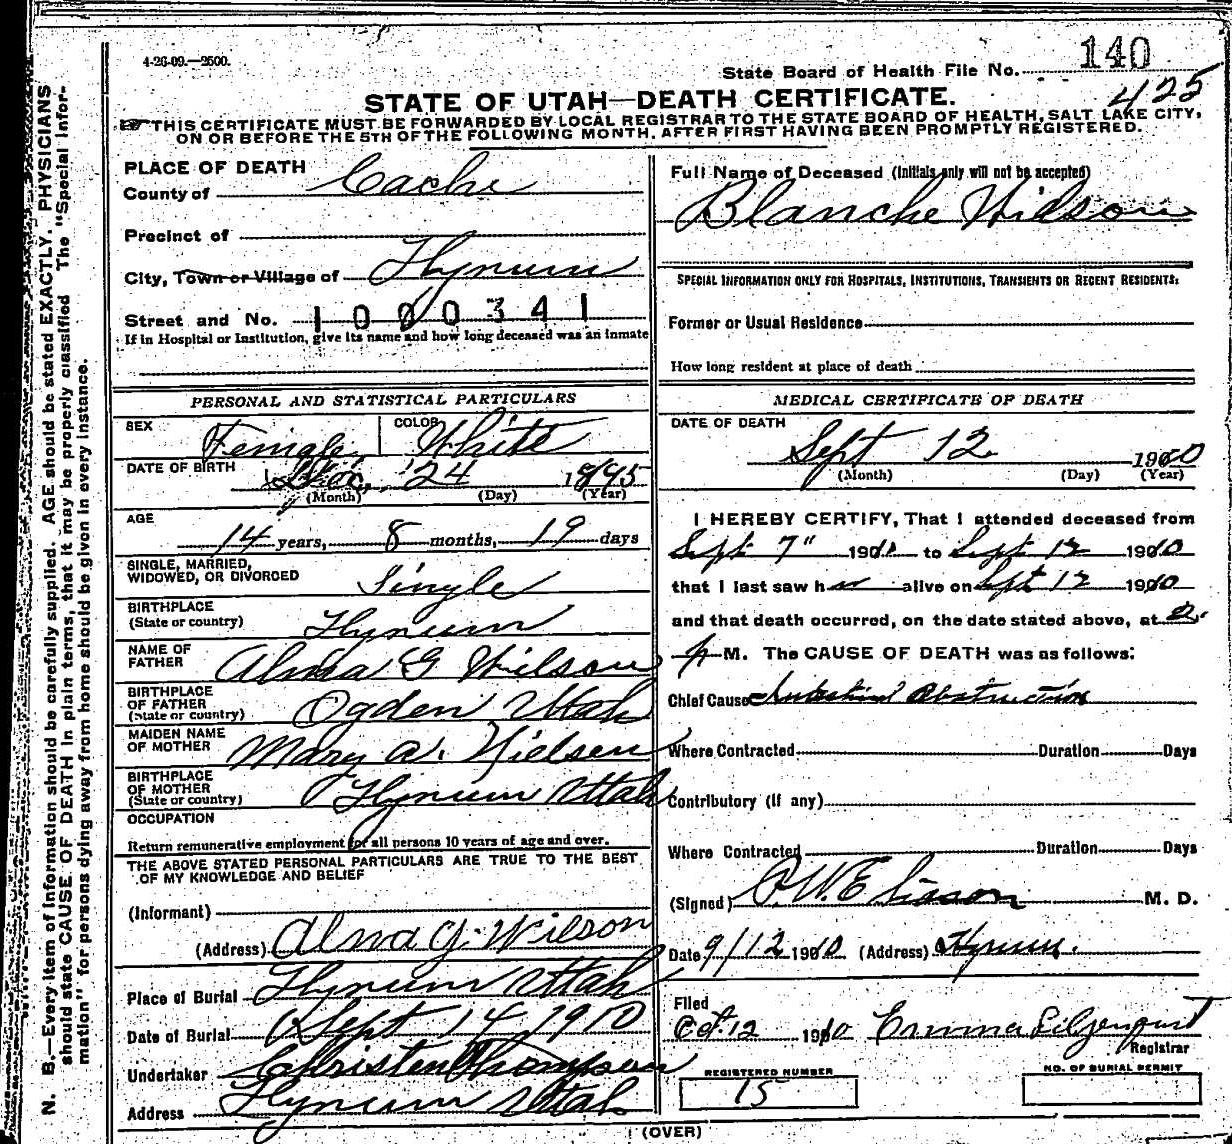 4-26-09.—2500.
State Board of Health File No. 140
425
STATE OF UTAH—DEATH CERTIFICATE.
THIS CERTIFICATE MUST BE FORWARDED BY LOCAL REGISTRAR TO THE STATE BOARD OF HEALTH, SALT LAKE CITY,
ON OR BEFORE THE 5TH OF THE FOLLOWING MONTH, AFTER FIRST HAVING BEEN PROMPTLY REGISTERED.
PLACE OF DEATH
County of Cache
Precinct of
City, Town or Village of Hyrum
Street and No. 1000341
If in Hospital or Institution, give its name and how long deceased was an inmate
PERSONAL AND STATISTICAL PARTICULARS
SEX Female COLOR White
DATE OF BIRTH 24 1895
(Month) (Day) (Year)
AGE
14 years, 8 months, 19 days
SINGLE, MARRIED,
WIDOWED, OR DIVORCED Single
BIRTHPLACE
(State or country) Hyrum
NAME OF
FATHER Alma G Wilson
BIRTHPLACE
OF FATHER
(State or country) Ogden Utah
MAIDEN NAME
OF MOTHER Mary A. Nielsen
BIRTHPLACE
OF MOTHER
(State or country) Hyrum Utah
OCCUPATION
Return remunerative employment for all persons 10 years of age and over.
THE ABOVE STATED PERSONAL PARTICULARS ARE TRUE TO THE BEST
OF MY KNOWLEDGE AND BELIEF
(Informant)
(Address) Alma G. Wilson
Place of Burial Hyrum Utah
Date of Burial Sept 14, 1910
Undertaker Christen Thompson
Address Hyrum Utah
Full Name of Deceased (Initials only will not be accepted)
Blanche Wilson
SPECIAL INFORMATION ONLY FOR HOSPITALS, INSTITUTIONS, TRANSIENTS OR RECENT RESIDENTS:
Former or Usual Residence
How long resident at place of death
MEDICAL CERTIFICATE OF DEATH
DATE OF DEATH
Sept 12 1910
(Month) (Day) (Year)
I HEREBY CERTIFY, That I attended deceased from
Sept 7" 1910 to Sept 12 1910
that I last saw her alive on Sept 12 1910
and that death occurred, on the date stated above, at 2
P M. The CAUSE OF DEATH was as follows:
Chief Cause Intestinal Obstruction
Where Contracted Duration Days
Contributory (if any)
Where Contracted Duration Days
(Signed) M. D.
Date 9/12 1910 (Address) Hyrum.
Filed
Oct. 12 1910 Emma Liljenquist
Registrar
REGISTERED NUMBER
15
NO. OF BURIAL PERMIT
(OVER)
N. B.—Every item of information should be carefully supplied. AGE should be stated EXACTLY. PHYSICIANS
should state CAUSE OF DEATH in plain terms, that it may be properly classified. The "Special Infor-
mation" for persons dying away from home should be given in every instance.